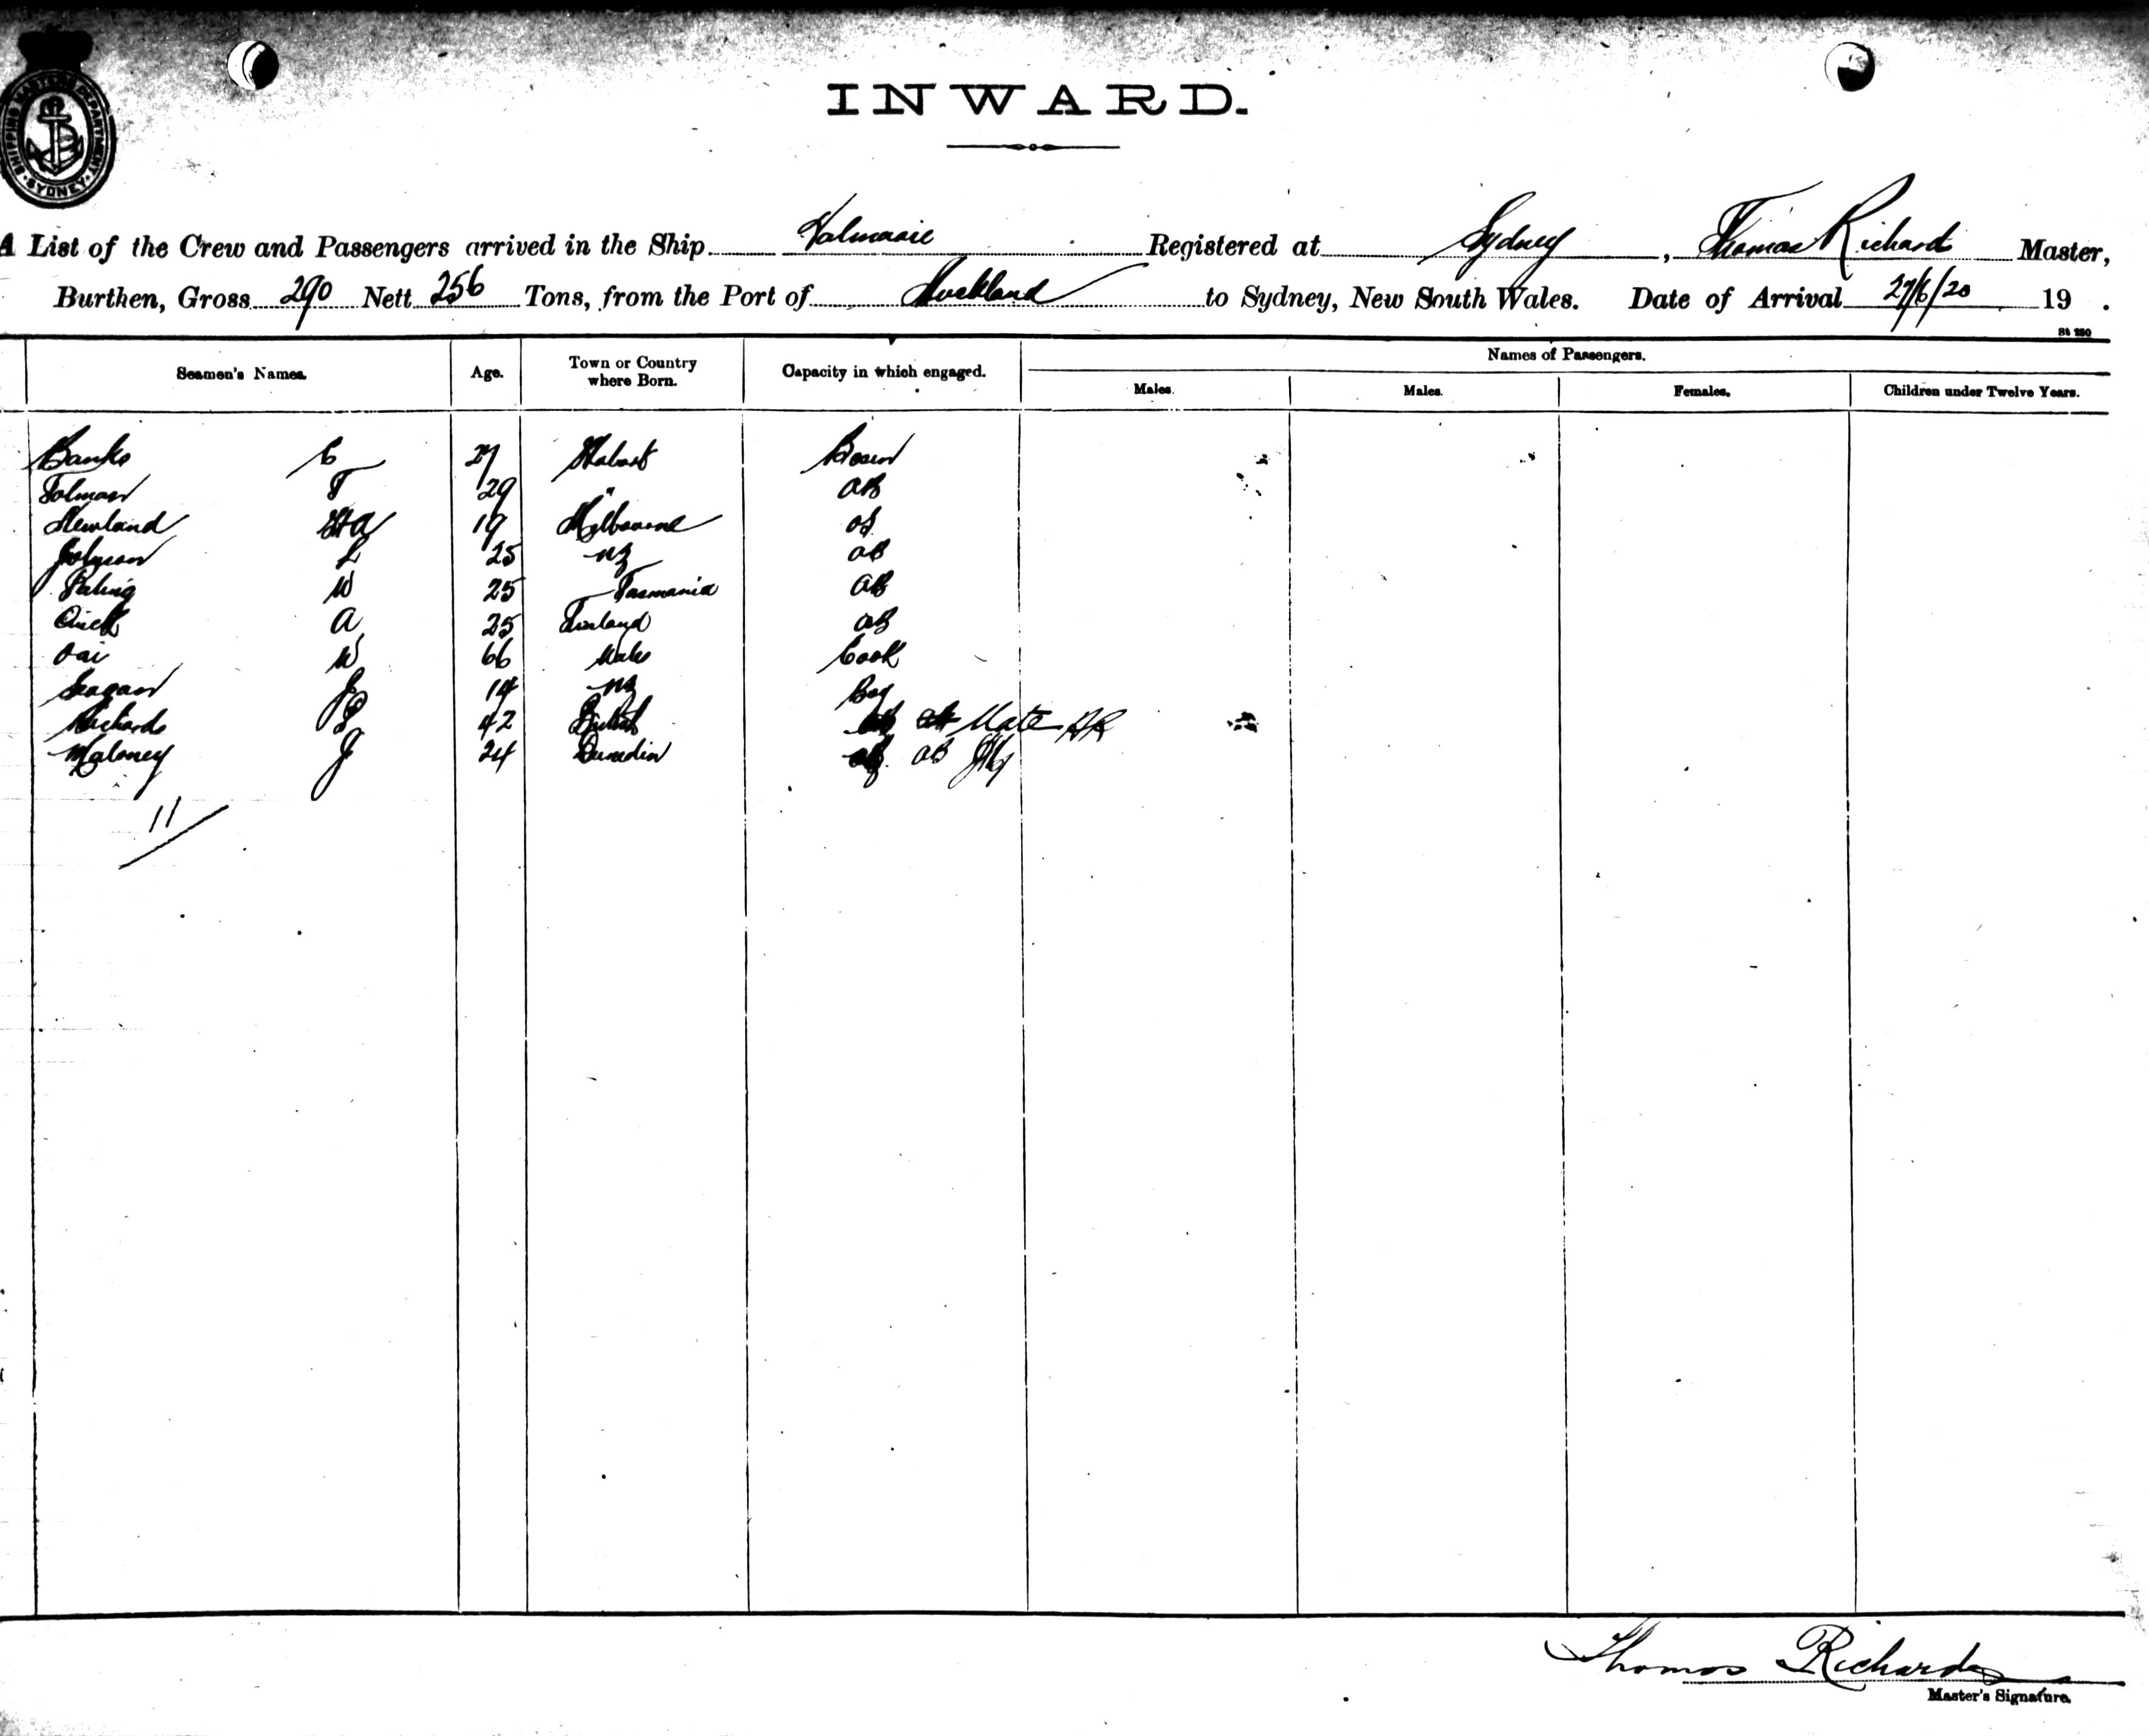 SHIPPING MASTER'S DEPARTMENT
SYDNEY
INWARD.
A List of the Crew and Passengers arrived in the Ship Registered at Sydney, Thomas Richard Master,
Burthen, Gross 290 Nett 256 Tons, from the Port of Auckland to Sydney, New South Wales. Date of Arrival 27/6/20 19 .
St 280
Seamen's Names. Age. Town or Country where Born. Capacity in which engaged. Names of Passengers.
Males. Males. Females. Children under Twelve Years.
Banks C 27 Hobart Bosun
Tolman T 29 " AB
Newland 19 Melbourne OS
L 25 NZ AB
Paling W 25 Tasmania AB
A 25 Finland AB
W 66 Cook
J 14 NZ Boy
Richards 42 British Mate
Maloney J 24 Dunedin AB
11
Thomas Richards
Master's Signature.